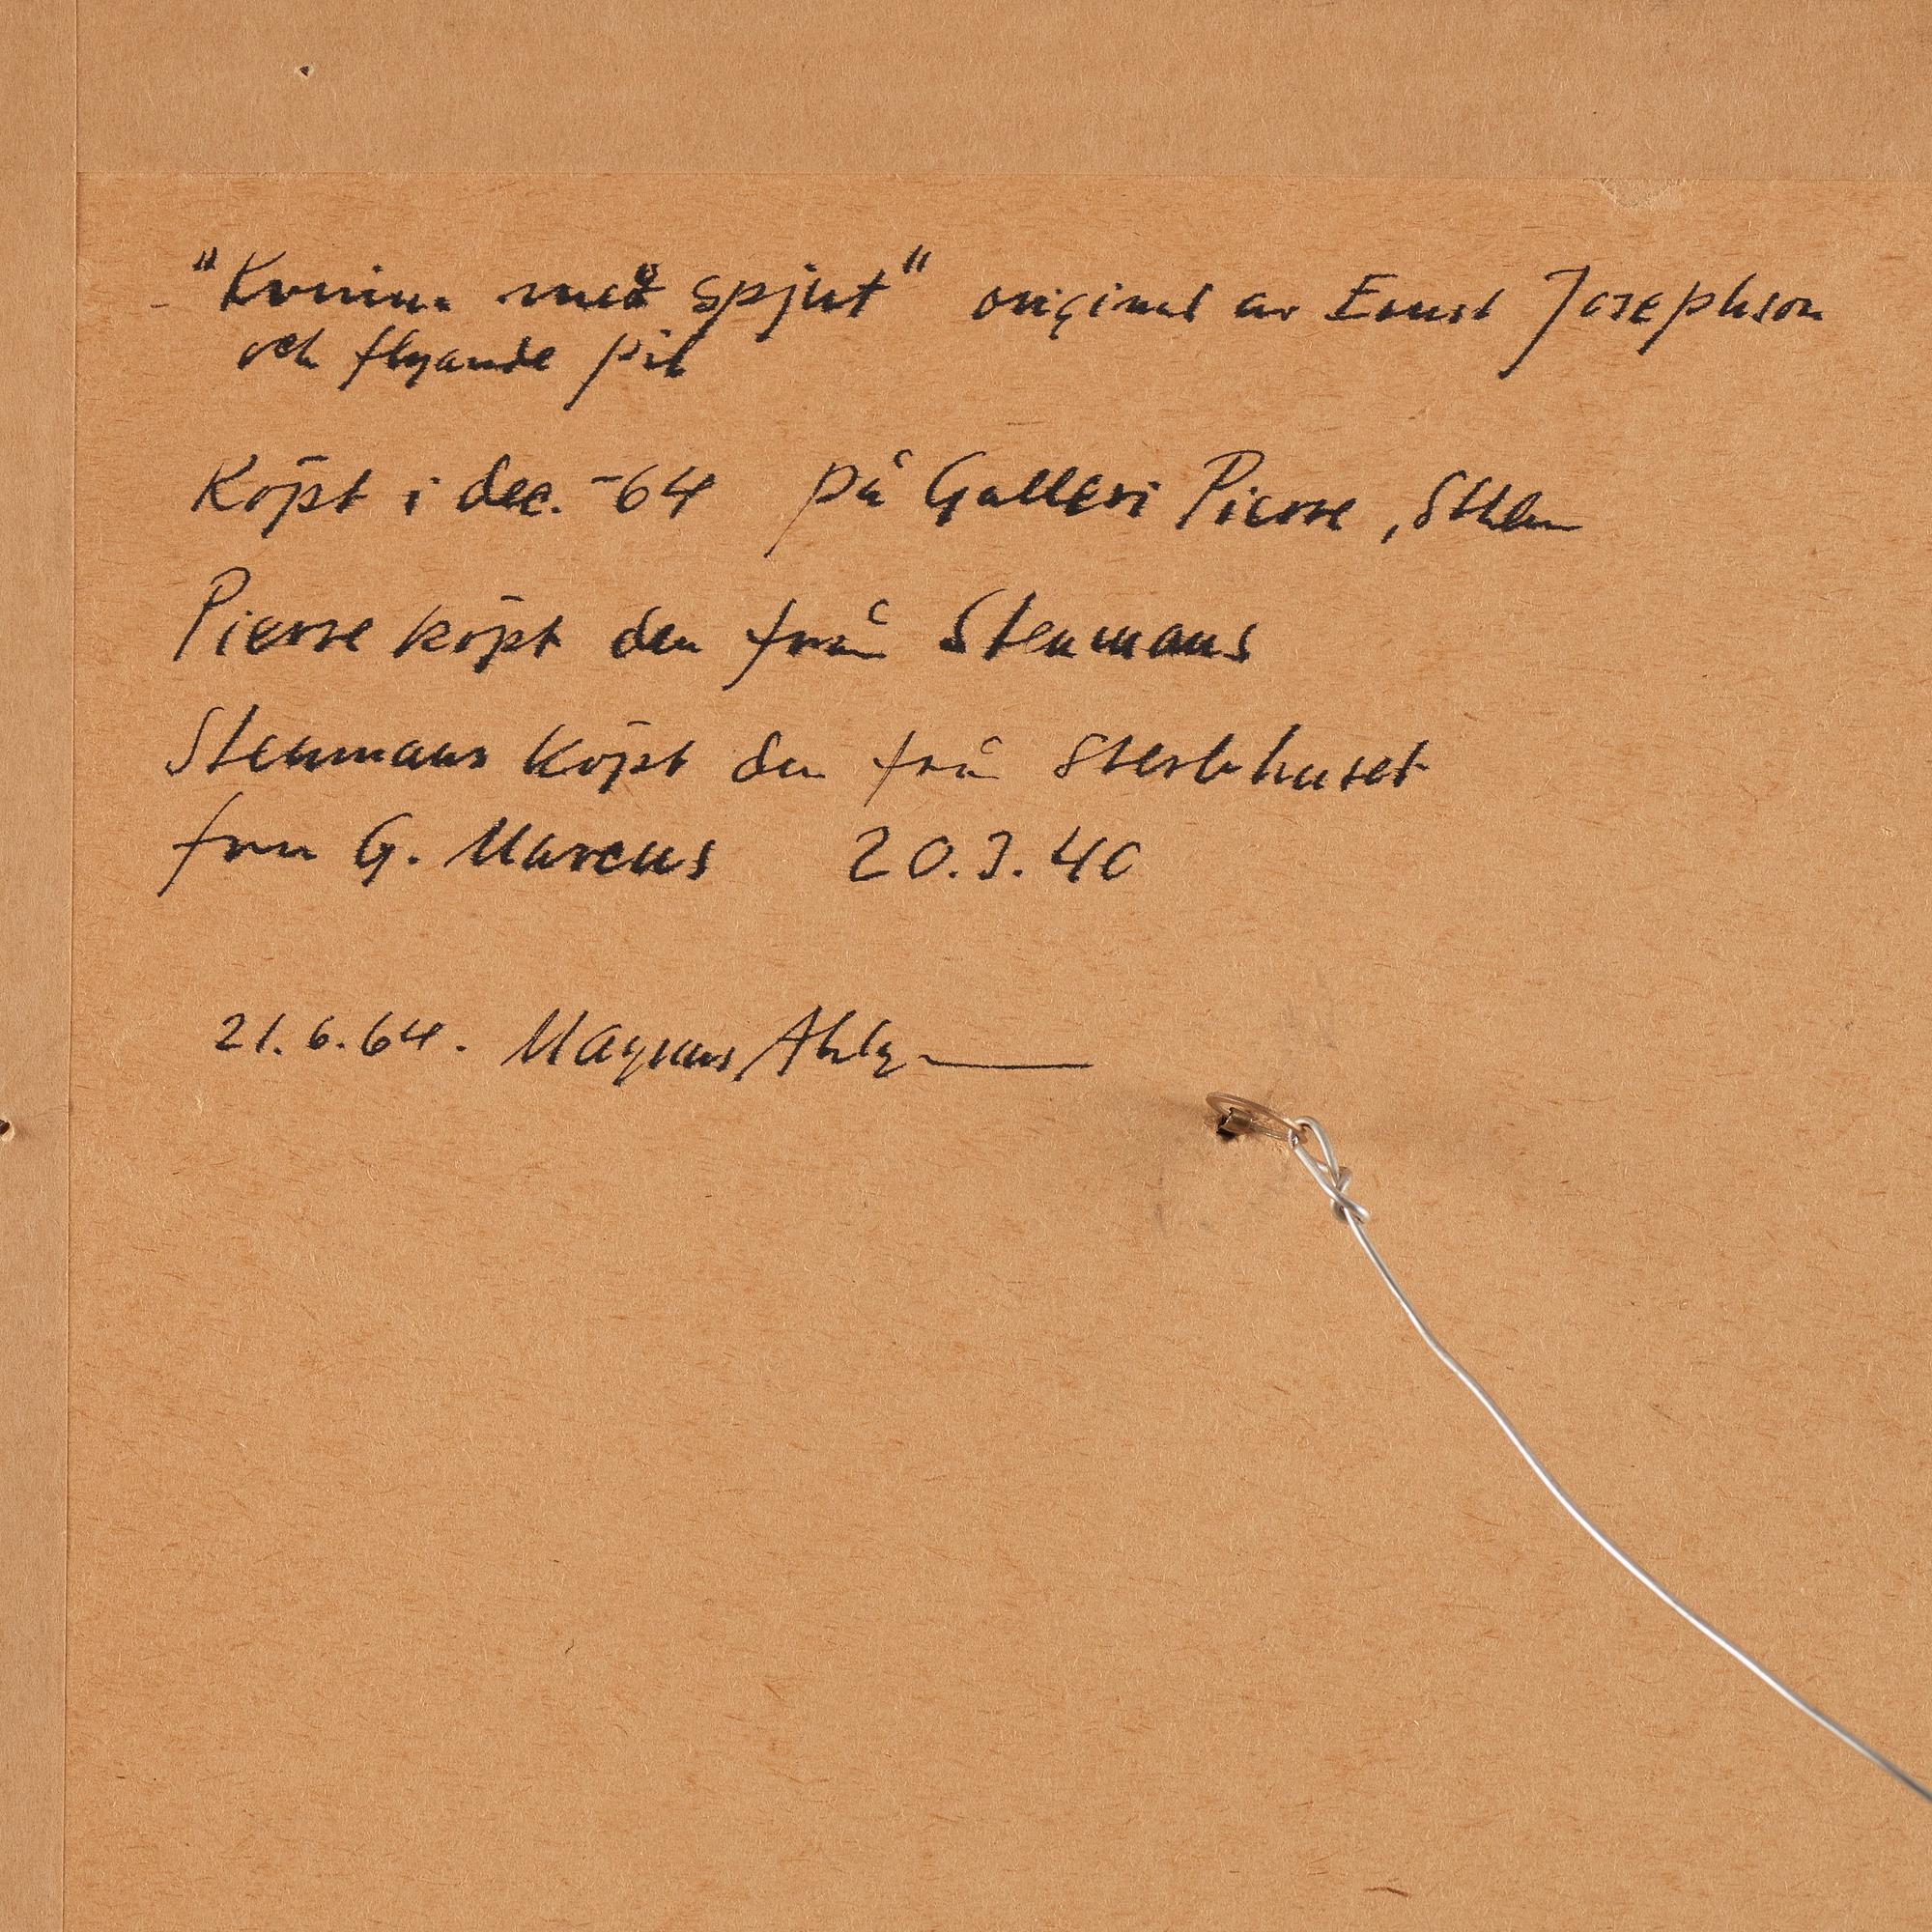 "Kvinna med spjut" original av Ernst Josephson
och flygande pil
Köpt i dec. -64 på Galleri Pierre, Sthlm
Pierre köpt den från Stenmans
Stenmans köpt den från sterbhuset
fru G. Marcus 20.3.40
21.6.64. Magnus